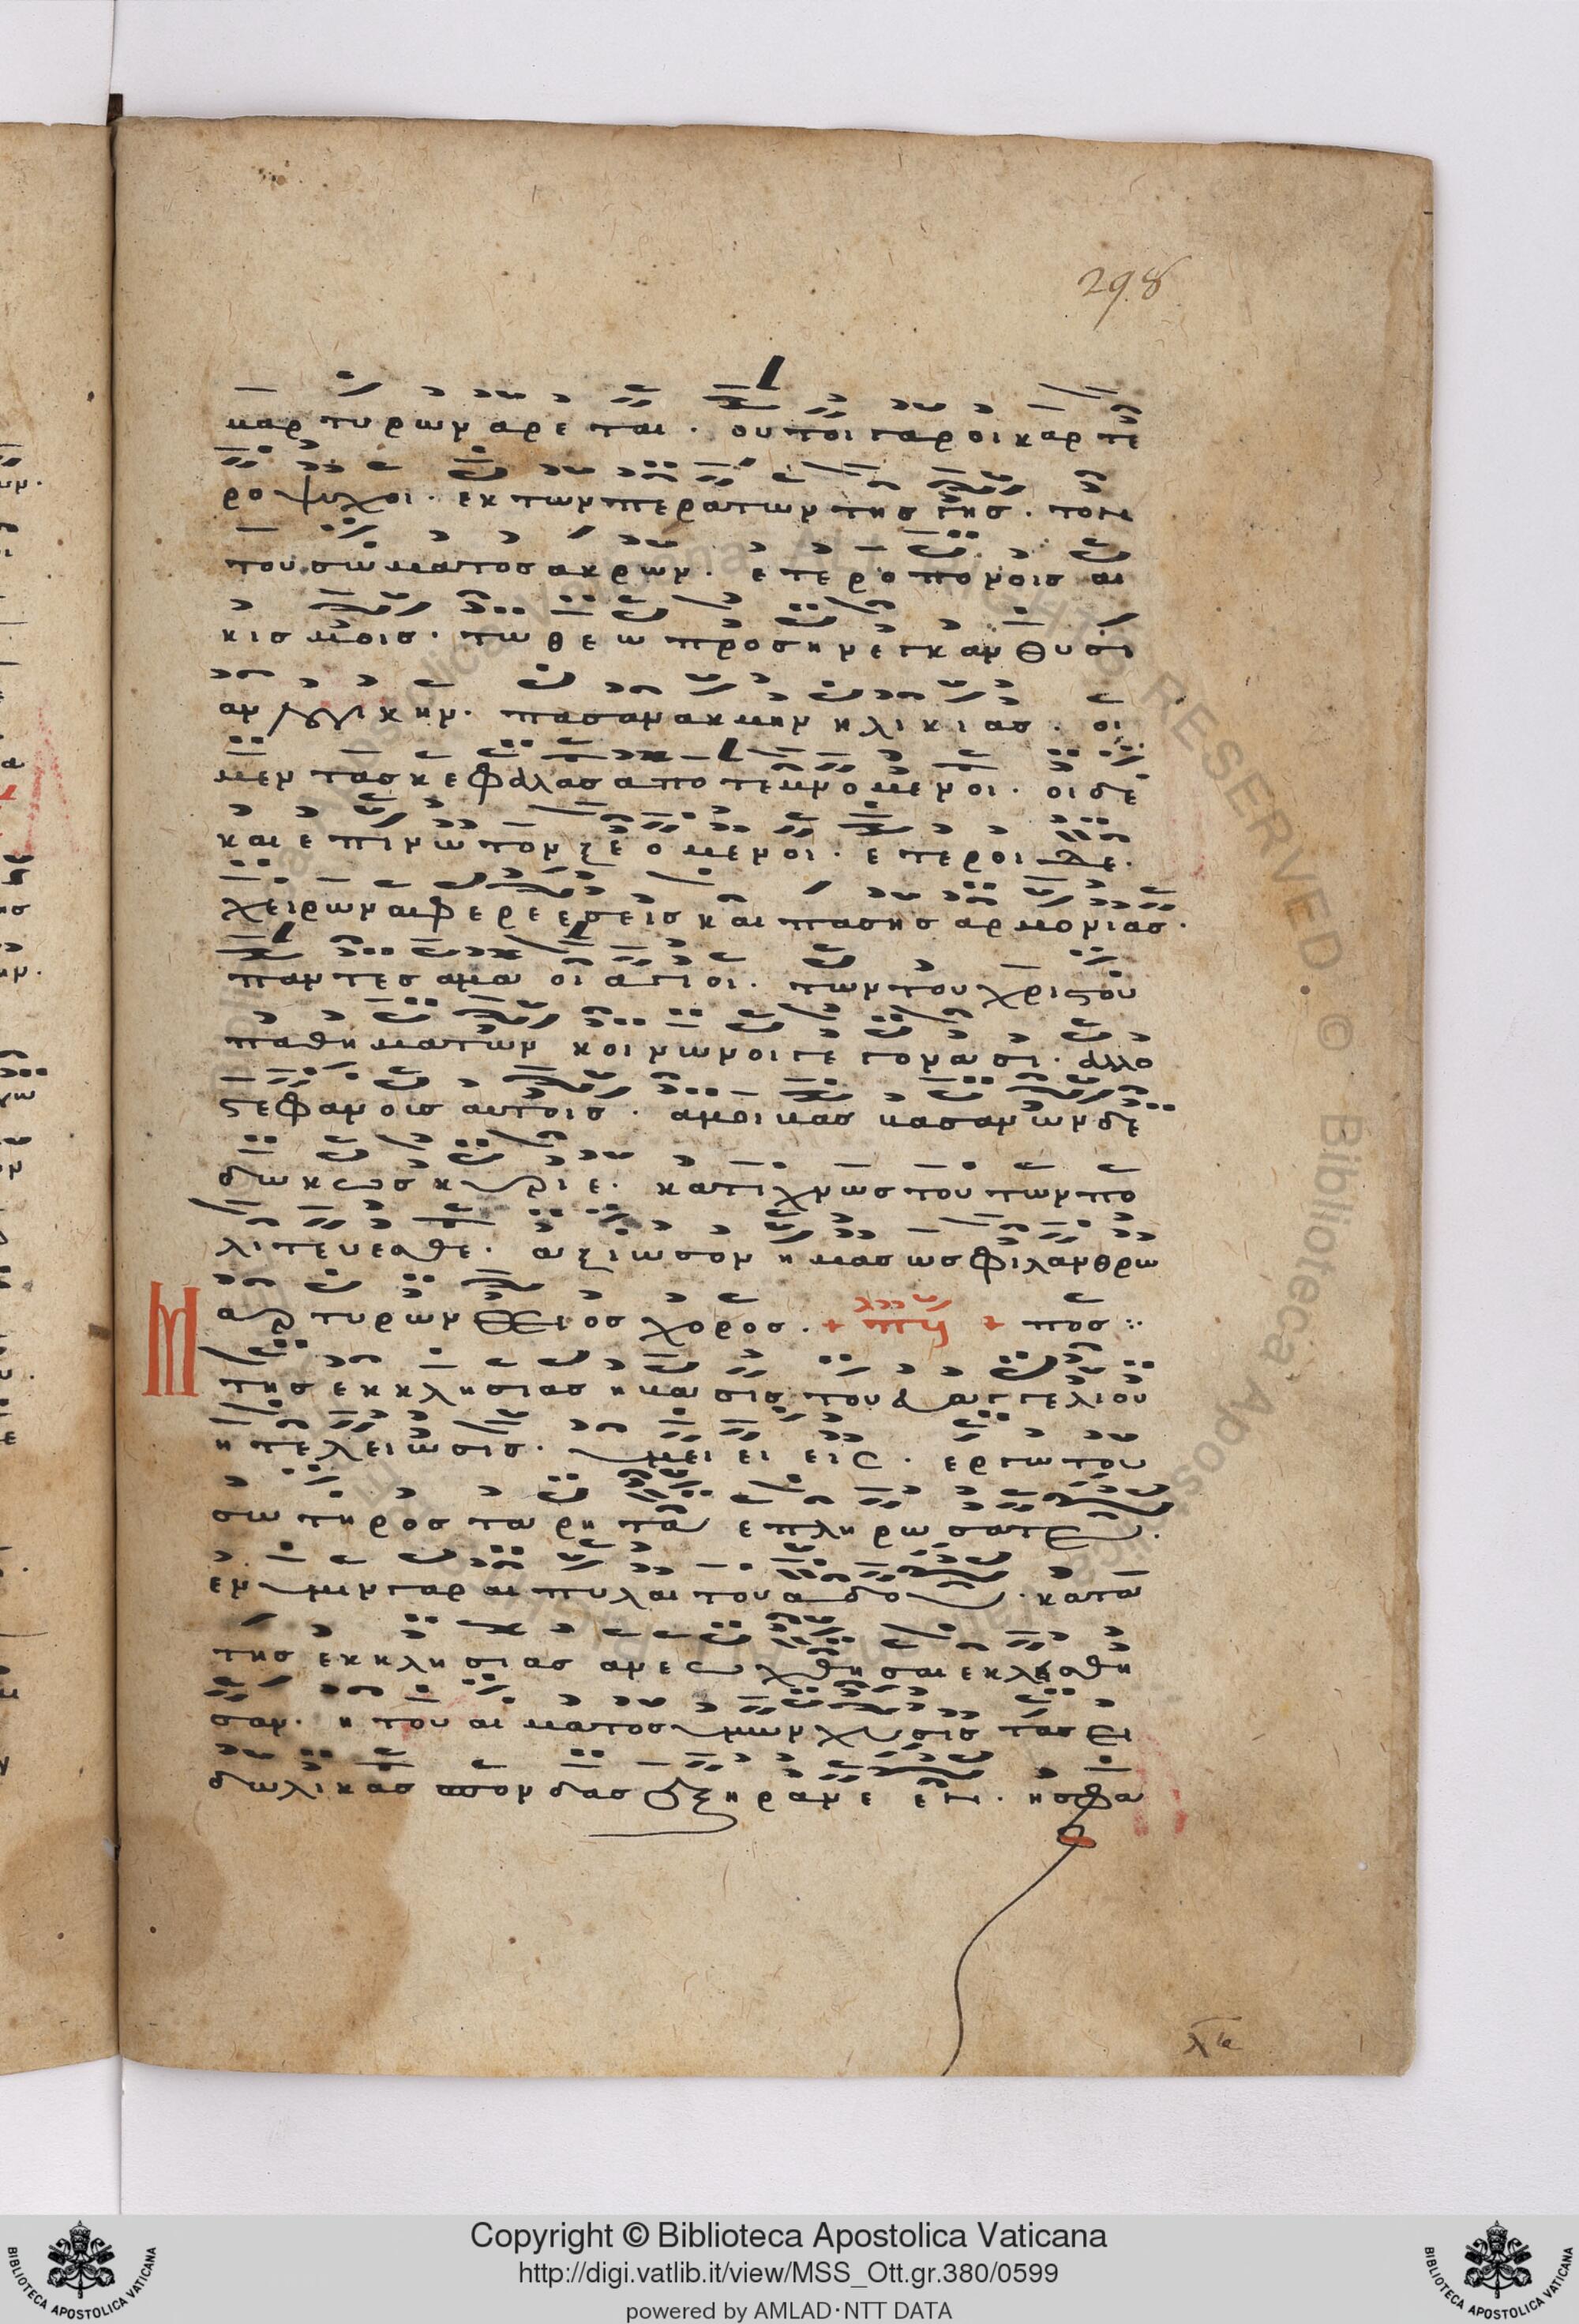 298
μαρτυρων αρεται. ουτοι γαρ οι καρτε
ροψυχοι. εκ των περατων της γης. τομη
του σωματος ακρων. ετεροτονοις αι
κισμοις. τω θεω προσηνεγκαν θυσι
αν λογικην. πασαν ακμην ηλικιας. οι
μεν τας κεφαλας αποτεμνομενοι. οι δε
και επι νωτον ξεομενοι. ετεροι δε.
χειρων αφερεεσεις και πασης αρμονιας.
παντες αμα οι αγιοι. των του χριστου
παθηματων κοινωνοι γεγονασι. αλλο
στεφανοις αυτοις. αμοιμας μασανωνδε
δωκως κυριε. κατ ιχνως του των πο
λιτευεσθε. αξιωσον ημας ως φιλανθρω
Μαρτυρων θειος χορος. πος
της εκκλησιας η βασις του ευαγγελιου
η τελειωσις. υμει ει εις. εργω του
σωτηρος τα ρητα επληρωσατε.
εν υμιν γαρ αι πυλαι του αδου. κατα
της εκκλησιας ανεωχθησαι εκλεισθη
σαν. η του αιματος υμων χυσις τας ει
δωλικας σπονδας εξηρανε εν. η σφα
Copyright © Biblioteca Apostolica Vaticana
http://digi.vatlib.it/view/MSS_Ott.gr.380/0599
powered by AMLAD·NTT DATA
BIBLIOTECA APOSTOLICA VATICANA
BIBLIOTECA APOSTOLICA VATICANA